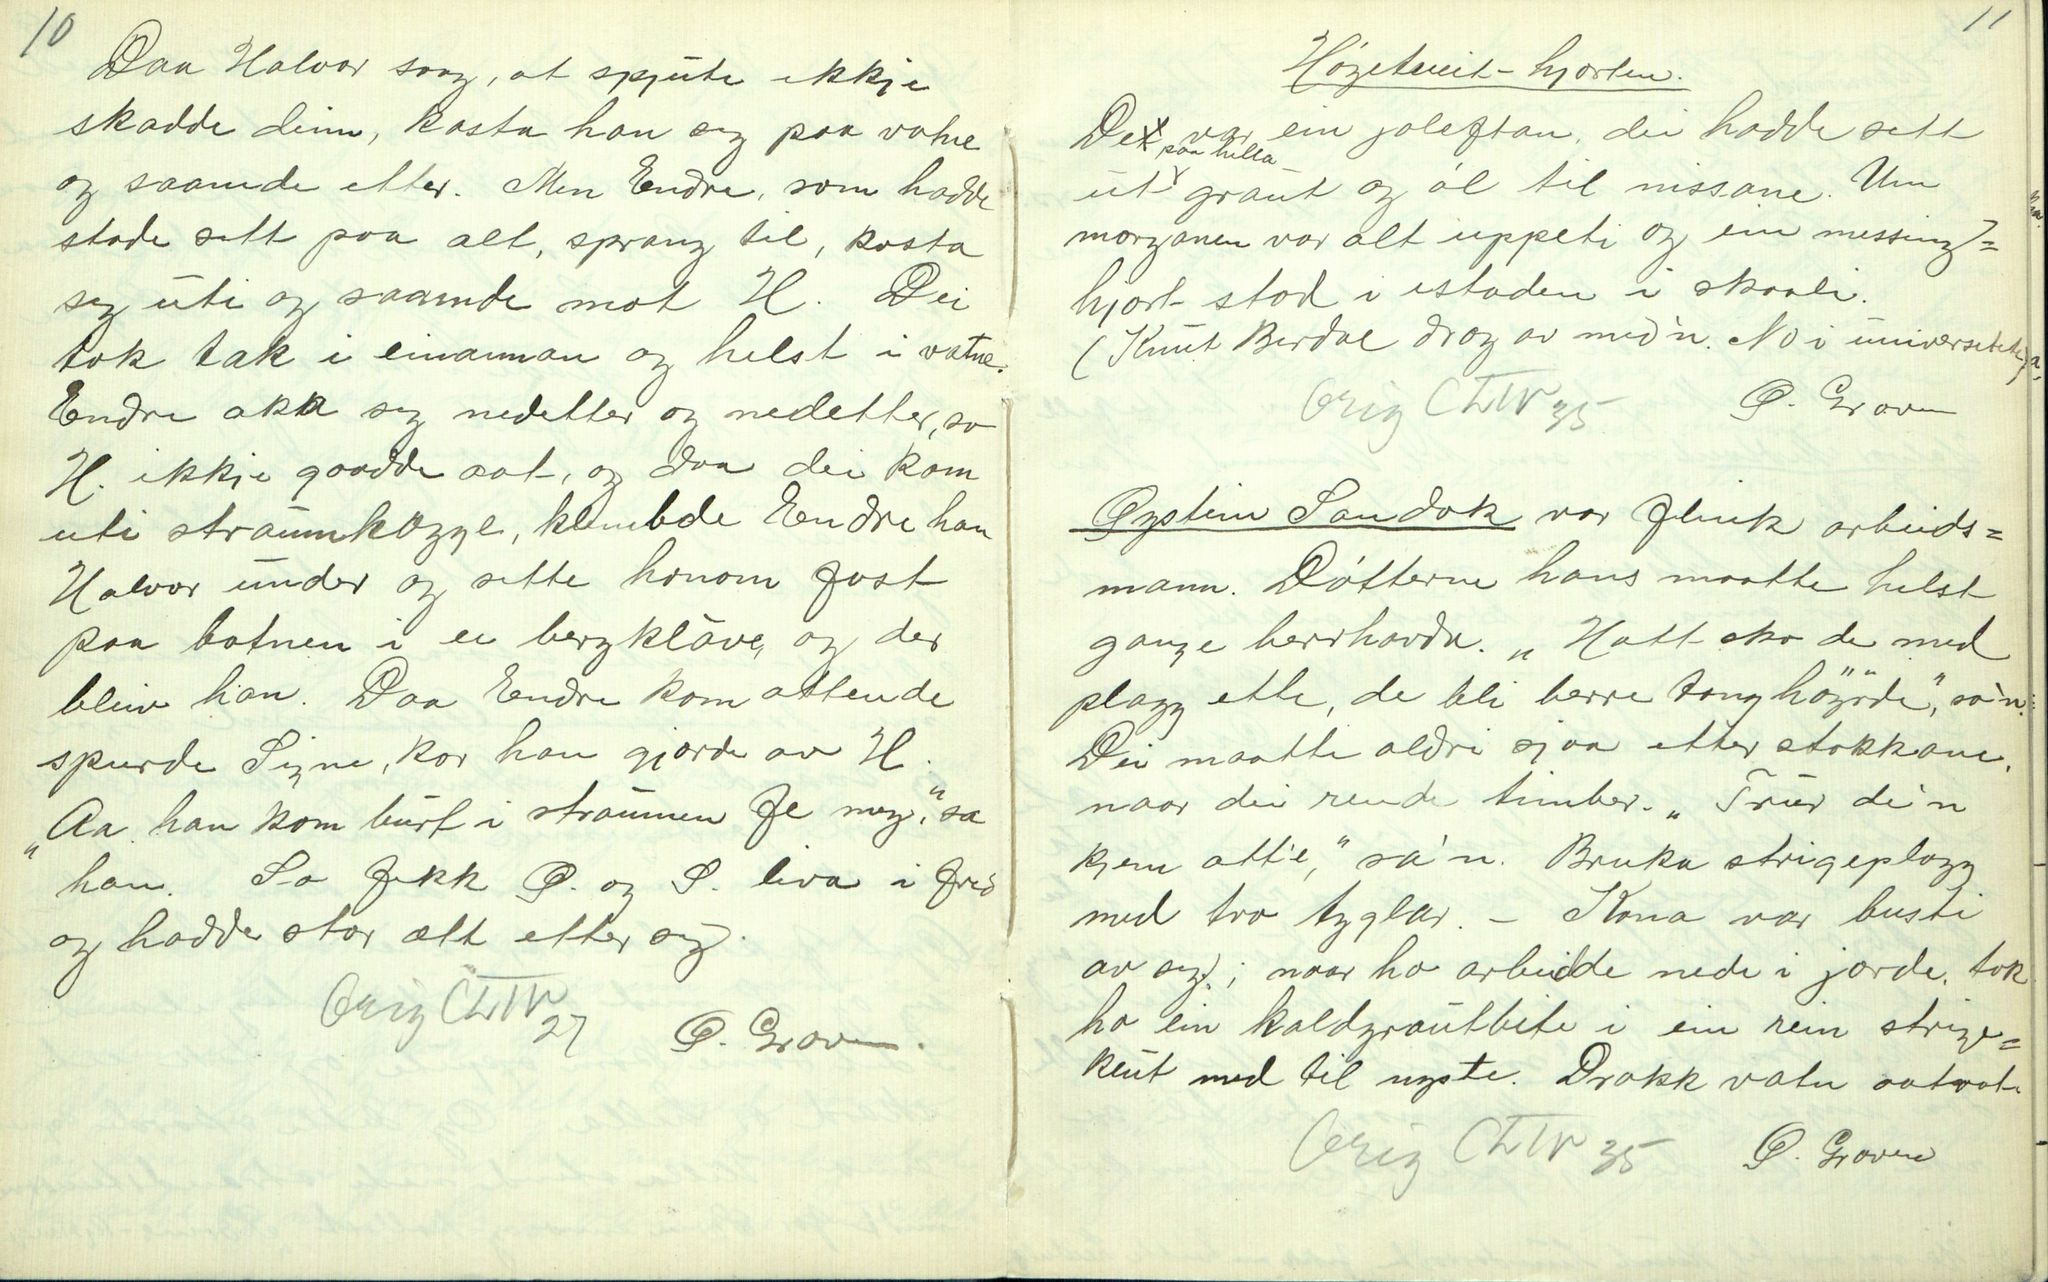 10
Daa Halvor saag, at spjute ikkje
skadde deim, kasta han seg paa vatne
og saamde etter. Men Endre, som hadde
stade sett paa alt, sprang til, kasta
seg uti og saamde mot H. Dei
tok tak i einannan og helst i vatne.
Endre akka seg nedetter og nedetter, so
H. ikkje gaadde aat, og daa dei kom
uti straumkogge, klembde Endre han
Halvor under og sette honom fast
paa botnen i ei bergklåve, og der
bleiv han. Daa Endre kom attende
spurde Signe, kor han gjorde av H.
"Aa han kom burt i straumen fe meg," sa
han. So fekk Ø. og S. liva i fred
og hadde stor ætt etter seg.
Orig CHW
27 Ø. Groven.
11
Høgetveit-hjorten.
De var ein joleftan, dei hadde sett
paa hella
ut graut og øl til nissane. Um
morganen var alt uppeti og ein messing=
hjort stod i istaden i skaali.
(Knut Berdal drog av med'n. No i universitetet)
Orig CHW 35 Ø. Groven
Øystein Sandok var flink arbeids=
mann. Døtterne hans maatte helst
gange berrhovda. "Hatt ska de med
plagg ette, de bli berre tonghöyrde," sa'n.
Dei maatte aldri sjaa etter stokkane,
naar dei rende timber. "Trur de'n
kjem att'e," sa'n. Bruka strigeplagg
med tro tyglar. – Kona var busti
av seg; naar ho arbeidde nede i jorde, tok
ho ein kaldgrautbite i ein rein strige=
klut med til nyste. Drakk vatn aatvat
Orig CHW 35 Ø. Groven